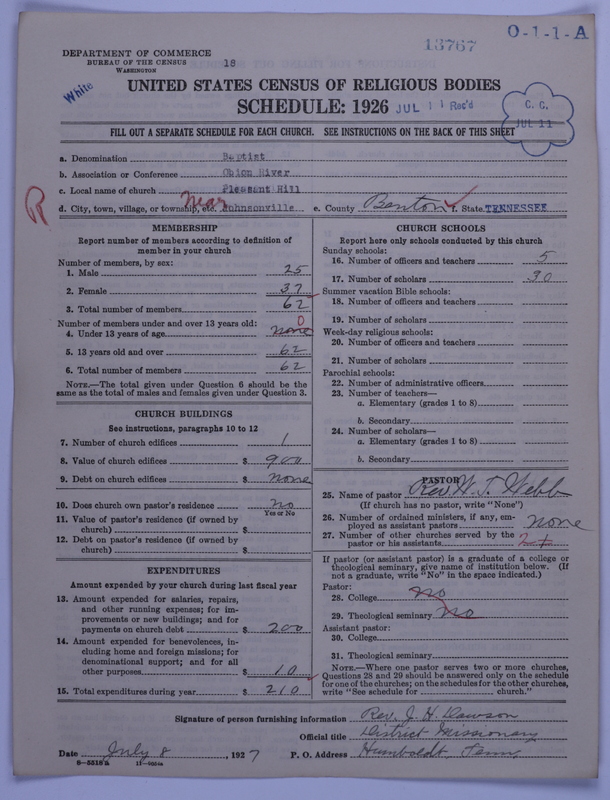 13767
O-1-1-A
DEPARTMENT OF COMMERCE
BUREAU OF THE CENSUS
WASHINGTON
18
White
UNITED STATES CENSUS OF RELIGIOUS BODIES
SCHEDULE: 1926
JUL 11 Rec'd
C. C.
JUL 11
FILL OUT A SEPARATE SCHEDULE FOR EACH CHURCH. SEE INSTRUCTIONS ON THE BACK OF THIS SHEET
a. Denomination Baptist
b. Association or Conference Obion River
c. Local name of church Pleasant Hill
R
d. City, town, village, or township, etc. Near Johnsonville e. County Benton f. State TENNESSEE
MEMBERSHIP
Report number of members according to definition of
member in your church
Number of members, by sex:
1. Male 25
2. Female 37
3. Total number of members 62
Number of members under and over 13 years old:
4. Under 13 years of age none 0
5. 13 years old and over 62
6. Total number of members 62
NOTE.—The total given under Question 6 should be the
same as the total of males and females given under Question 3.
CHURCH BUILDINGS
See instructions, paragraphs 10 to 12
7. Number of church edifices 1
8. Value of church edifices $ 900
9. Debt on church edifices $ none
10. Does church own pastor's residence no
Yes or No
11. Value of pastor's residence (if owned by
church) $
12. Debt on pastor's residence (if owned by
church) $
EXPENDITURES
Amount expended by your church during last fiscal year
13. Amount expended for salaries, repairs,
and other running expenses; for im-
provements or new buildings; and for
payments on church debt $ 200
14. Amount expended for benevolences, in-
cluding home and foreign missions; for
denominational support; and for all
other purposes $ 10
15. Total expenditures during year $ 210
CHURCH SCHOOLS
Report here only schools conducted by this church
Sunday schools:
16. Number of officers and teachers 5
17. Number of scholars 30
Summer vacation Bible schools:
18. Number of officers and teachers
19. Number of scholars
Week-day religious schools:
20. Number of officers and teachers
21. Number of scholars
Parochial schools:
22. Number of administrative officers
23. Number of teachers—
a. Elementary (grades 1 to 8)
b. Secondary
24. Number of scholars—
a. Elementary (grades 1 to 8)
b. Secondary
PASTOR
25. Name of pastor Rev. W. T. Webb
(If church has no pastor, write "None")
26. Number of ordained ministers, if any, em-
ployed as assistant pastors none
27. Number of other churches served by the
pastor or his assistants
If pastor (or assistant pastor) is a graduate of a college or
theological seminary, give name of institution below. (If
not a graduate, write "No" in the space indicated.)
Pastor:
28. College no
29. Theological seminary no
Assistant pastor:
30. College
31. Theological seminary
NOTE.—Where one pastor serves two or more churches,
Questions 28 and 29 should be answered only on the schedule
for one of the churches; on the schedules for the other churches,
write "See schedule for church."
Signature of person furnishing information Rev. J. H. Dawson
Official title District Missionary
Date July 8, 1927 P. O. Address Humboldt Tenn.